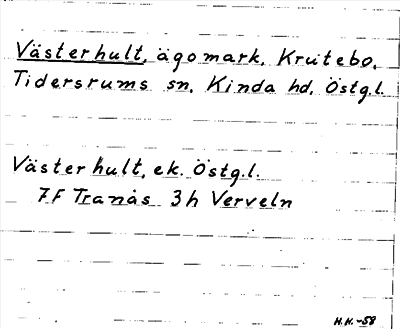 Västerhult, ägomark, Krutebo,
Tidersrums sn, Kinda hd, Östg.l.
Västerhult, ek. Östg.l.
7F Tranås 3h Verveln
H.K.-58